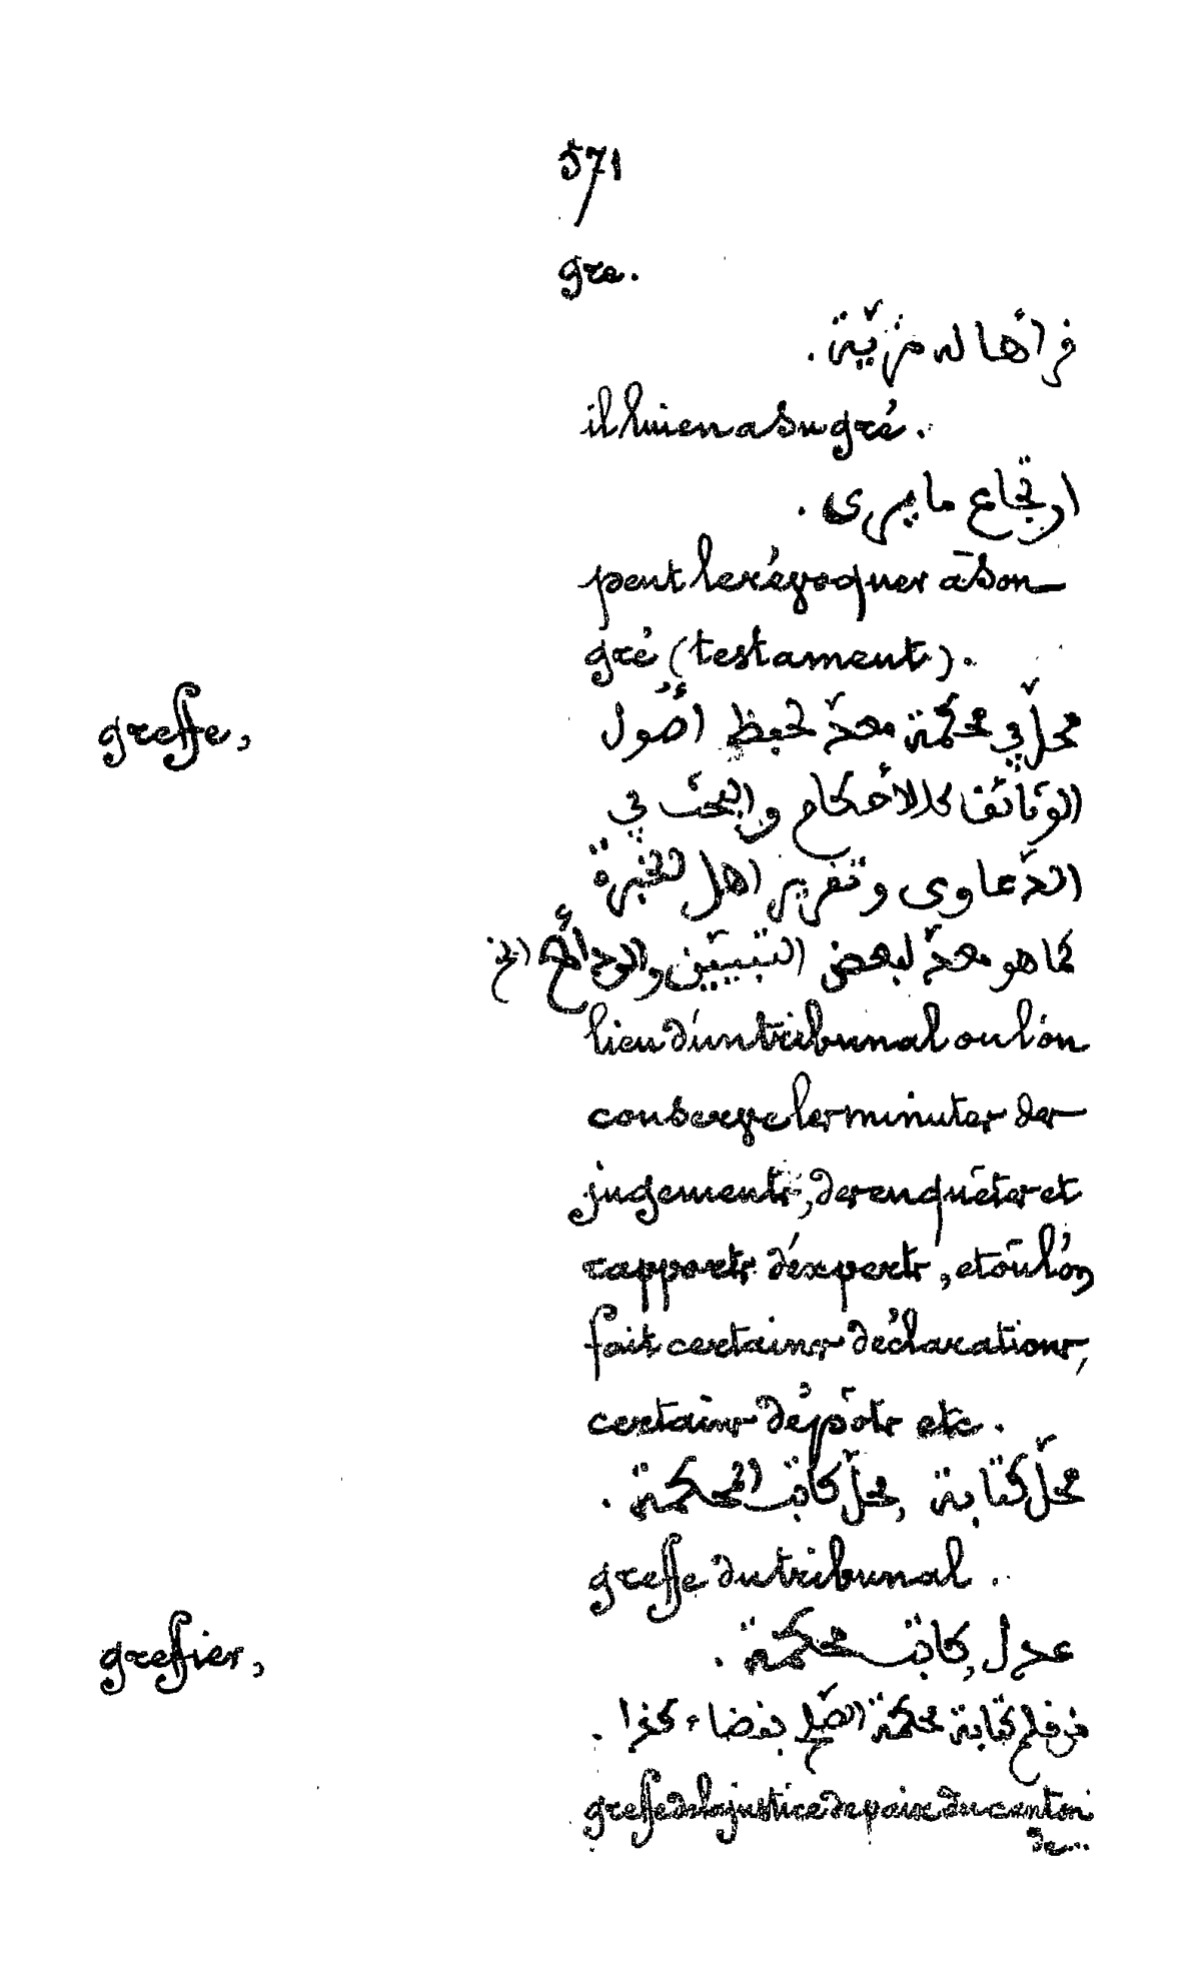 571
gre.
فرأها له مزيّة.
il lui en a su gré.
ارتجاع ما يرى.
peut le révoquer à son
gré (testament).
greffe,
محلّ في محكمة معدّ لحفظ أصول
الوثائق كالأحكام والبحث في
الدّعاوى وتقرير اهل الخبرة
كما هو معدّ لبعض التبيين والودائع الخ
lieu d'un tribunal ou l'on
conserve les minutes des
jugements, des enquêtes et
rapports d'experts, et où l'on
fait certaines déclarations,
certains dépôts etc.
محلّ كتابة, محلّ كاتب المحكمة.
greffe du tribunal.
greffier,
عدل, كاتب محكمة.
من قلم كتابة محكمة الصّلح بقضاء كذا.
greffe de la justice de paix du canton
de...